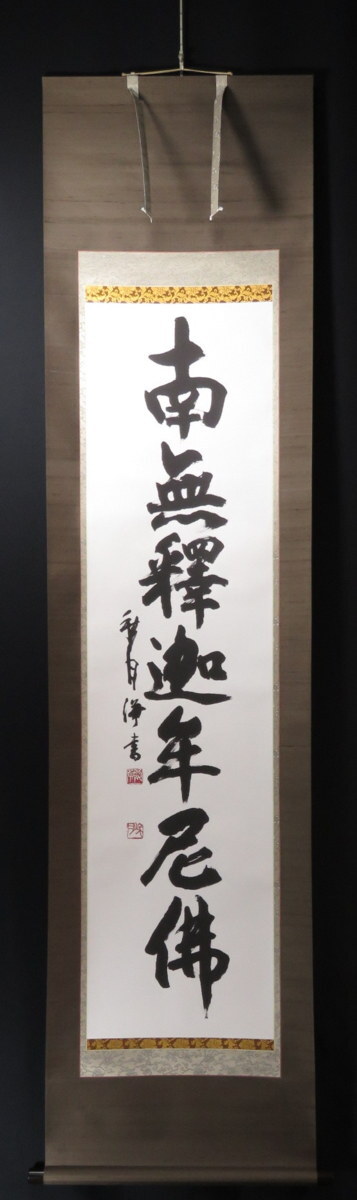 南無釋迦牟尼佛
月海書